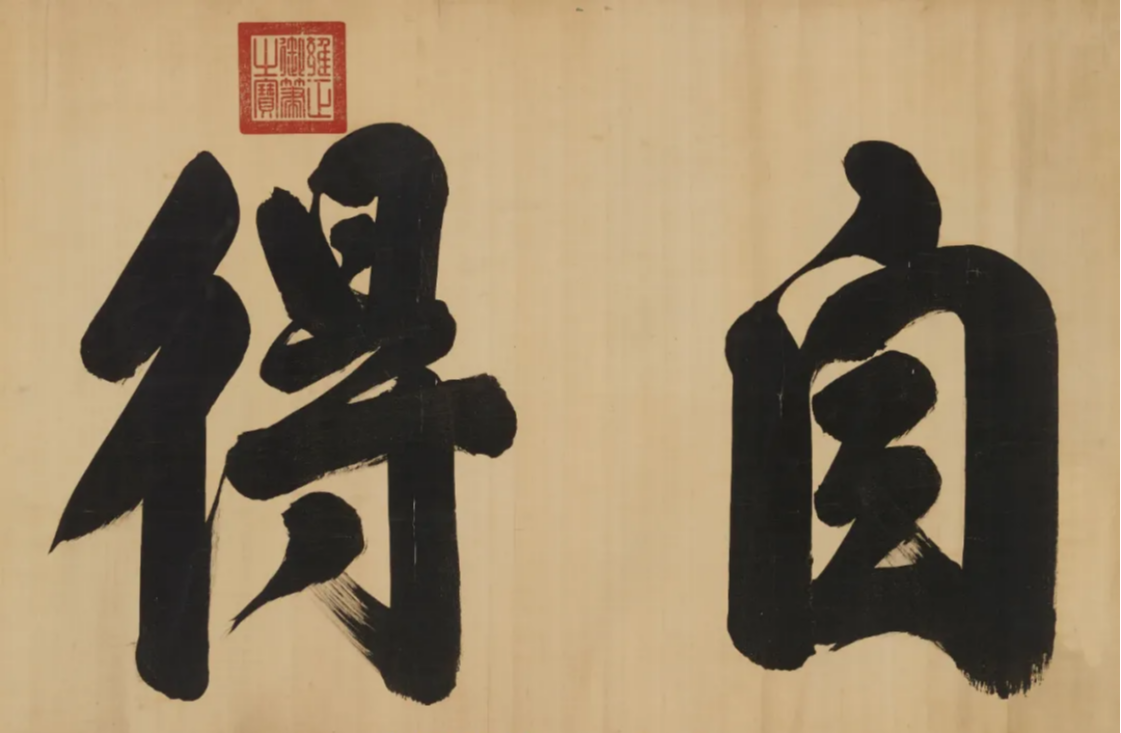 自得
雍正御筆之寶